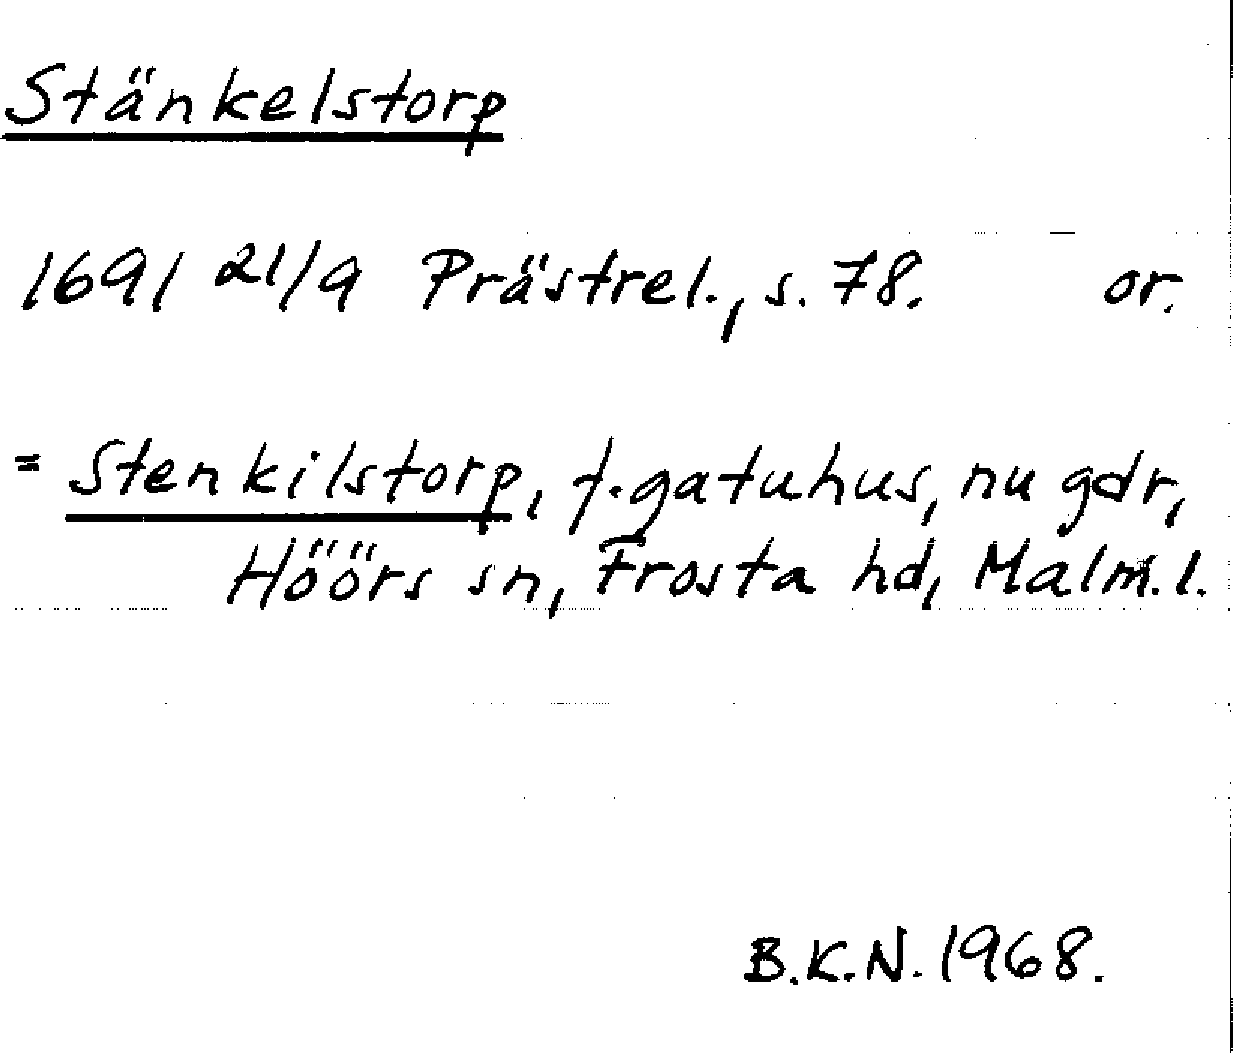 Stänkelstorp
1691 21/9 Prästrel., s. 78. or.
= Stenkilstorp, f. gatuhus, nu gdr,
Höörs sn, Frosta hd, Malm. l.
B.K.N. 1968.